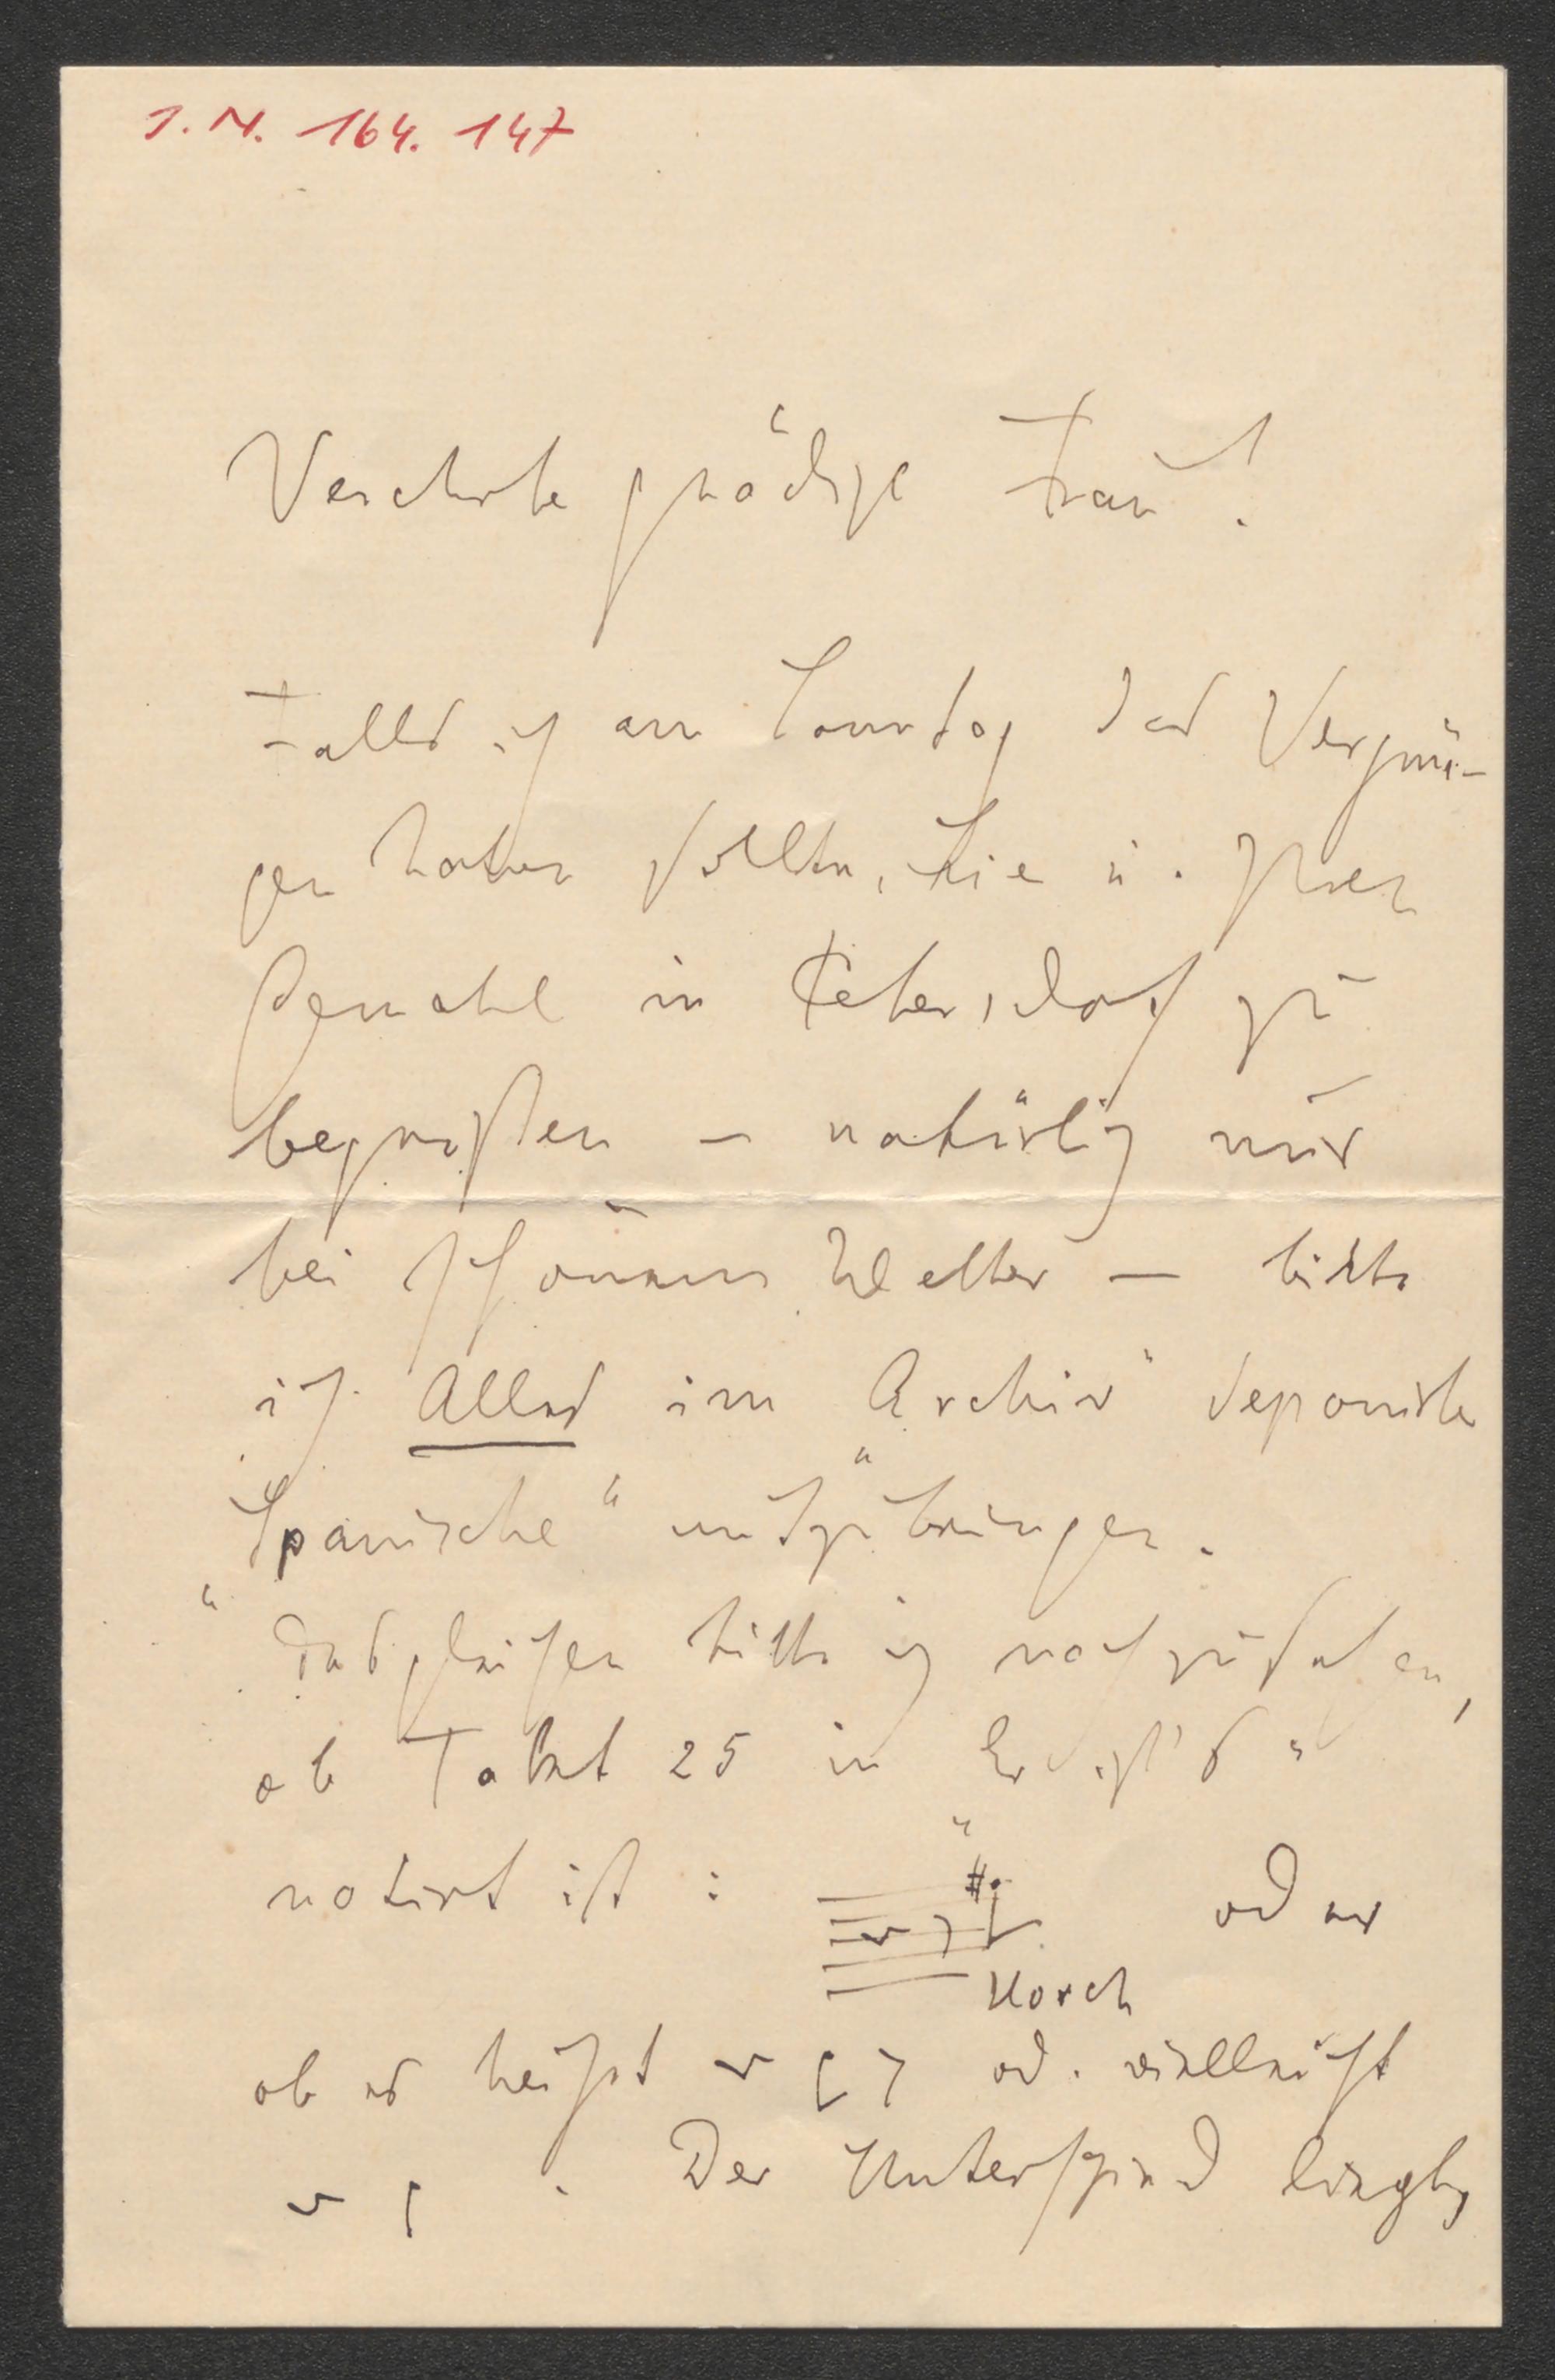 I. N. 164. 147
Verehrte gnädige Frau!
Falls ich am Sonntag das Vergnü-
gen haben sollte, Sie u. Ihren
Gemahl in Petersdorf zu
begrüßen – natürlich nur
bei schönem Wetter – bitte
ich Alles im „Archiv“ deponirte
„Spanische“ mitzubringen.
Desgleichen bitte ich nachzusehen,
ob Takt 25 in „Er ist's“
notirt ist: oder
Horch
ob es heißt od. vielleicht
. Der Unterschied